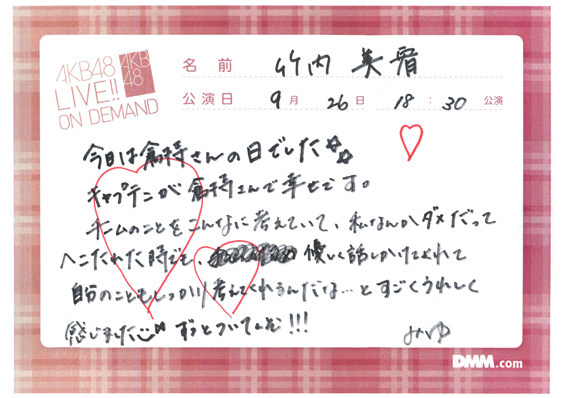 AKB48
LIVE!!
ON DEMAND
AKB
48
名前 竹内 美宥
公演日 9月 26日 18:30 公演
今日は倉持さんの日でした
キャプテンが倉持さんで幸せです。
チームのことをこんなに考えていて、私なんかダメだって
へこたれた時でも、優しく話しかけてくれて
自分のこともしっかり考えてくれるんだな…とすごくうれしく
感じました ずっとついてくぞ!!!
みゆ
DMM.com